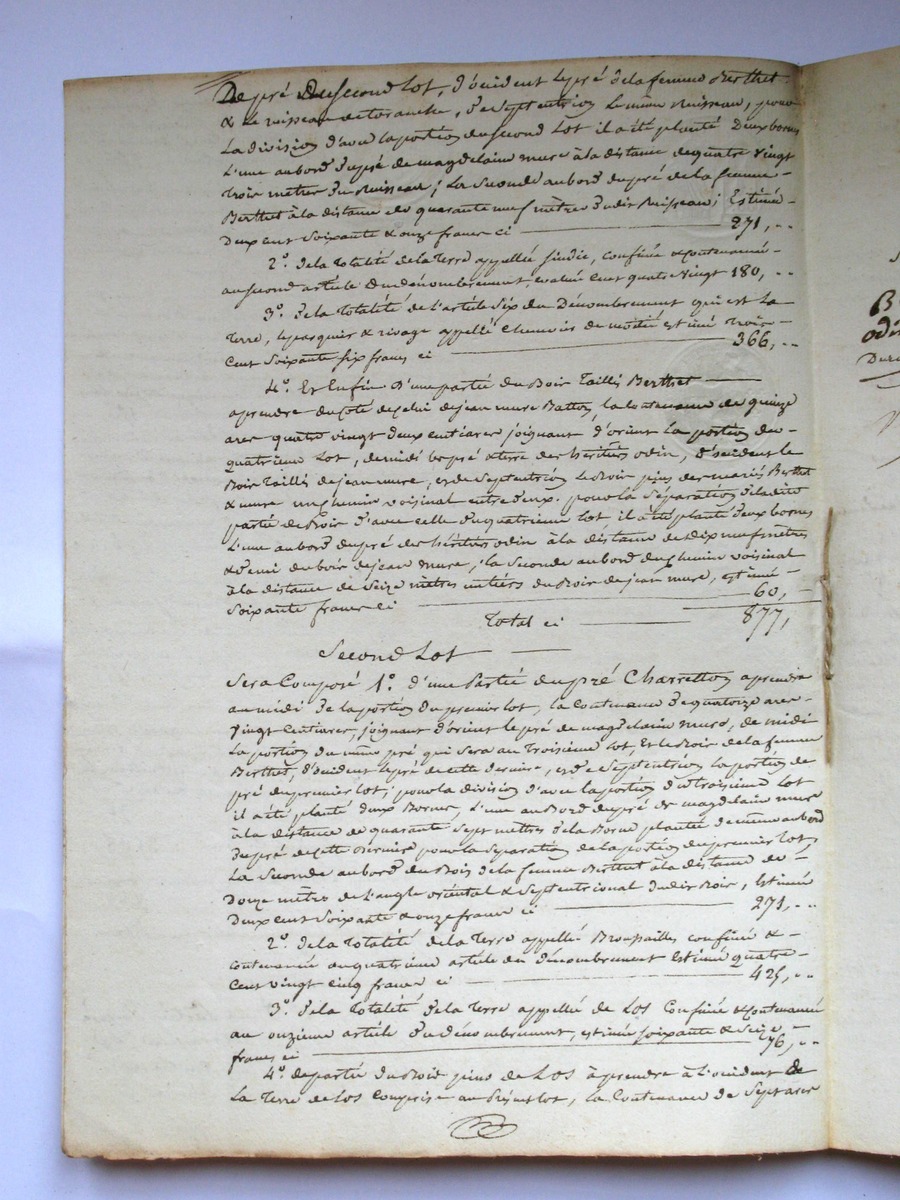 De pré du second Lot, d'occident le pré de la femme Berthet
& le ruisseau de toranche, de septentrion le même Ruisseau, pour
La division d'avec la portion du second Lot il a été planté Deux bornes
L'une au bord du pré de magdelaine mure à la distance de quatre vingt
trois mètres du Ruisseau; La Seconde au bord du pré de la femme
Berthet à la distance de quarante neuf mètres dudit Ruisseau; Estimée
Deux cent Soixante & onze francs ci 271,
2º. de la totalité de la Terre appellée , confinée & contenancée
au second article du dénombrement, évalué Cent quatre vingt 180,
3º. de la Totalité de l'article Six du Dénombrement qui est la
Terre, le pasquier & rivage appellé de moitié estimé Trois
Cent Soixante six francs ci 366,
4º. Et Enfin d'une partie du Bois Taillis Berthet
à prendre du côté de celui de jean mure Batton, la contenance de quinze
ares quatre vingt deux centiares joignant d'orient La portion du
quatrieme Lot, de midi le pré & terre des héritiers odin, d'occident le
Bois Taillis de jean mure, et de Septentrion le Bois pins des mariés Berthet
& mure un chemin voisinal entre deux. pour la Séparation de ladite
partie de Bois d'avec celle du quatrieme lot il a été planté deux bornes
L'une au bord du pré des héritiers odin à la distance de dix neuf mètres
& demi du bois de jean mure, la Seconde au bord du chemin voisinal
à la distance de Seize mètres du Bois de jean mure, estimée
Soixante francs ci 60,
Total ci 877,
Second Lot
Sera Composé 1º. d'une Partie du pré Charretton à prendre
au midi de la portion du premier lot, la Contenance de quatorze ares
Vingt Centiares, joignant d'orient le pré de magdelaine mure, de midi
La portion du même pré qui sera au Troisième lot Et le Bois de la femme
Berthet, d'occident le pré de cette dernière, et de Septentrion la portion de
pré du premier lot; pour la division d'avec la portion du troisième Lot
il a été planté deux Bornes, L'une au Bord du pré de magdelaine mure
à la distance de quarante Sept mètres de la Borne plantée de même au bord
du pré de cette Dernière pour la Séparation de la portion du premier lot,
La Seconde au bord du Bois de la femme Berthet à la distance de
Douze mètres de l'angle oriental & Septentrional dudit Bois, Estimée
Deux cent Soixante & onze francs ci 271,
2º. de la Totalité de la Terre appellée Broussailles confinée &
contenancée au quatrieme article du dénombrement Estimée quatre
Cent vingt cinq francs ci 425,
3º. de la Totalité de la Terre appellée de Los Confinée & contenancée
au onzième article du dénombrement, estimée soixante & Seize
francs ci 76,
4º. de partie du Bois pins de Los à prendre à l'occident de
La Terre de Los Comprise au Présent lot, la Contenance de Sept ares